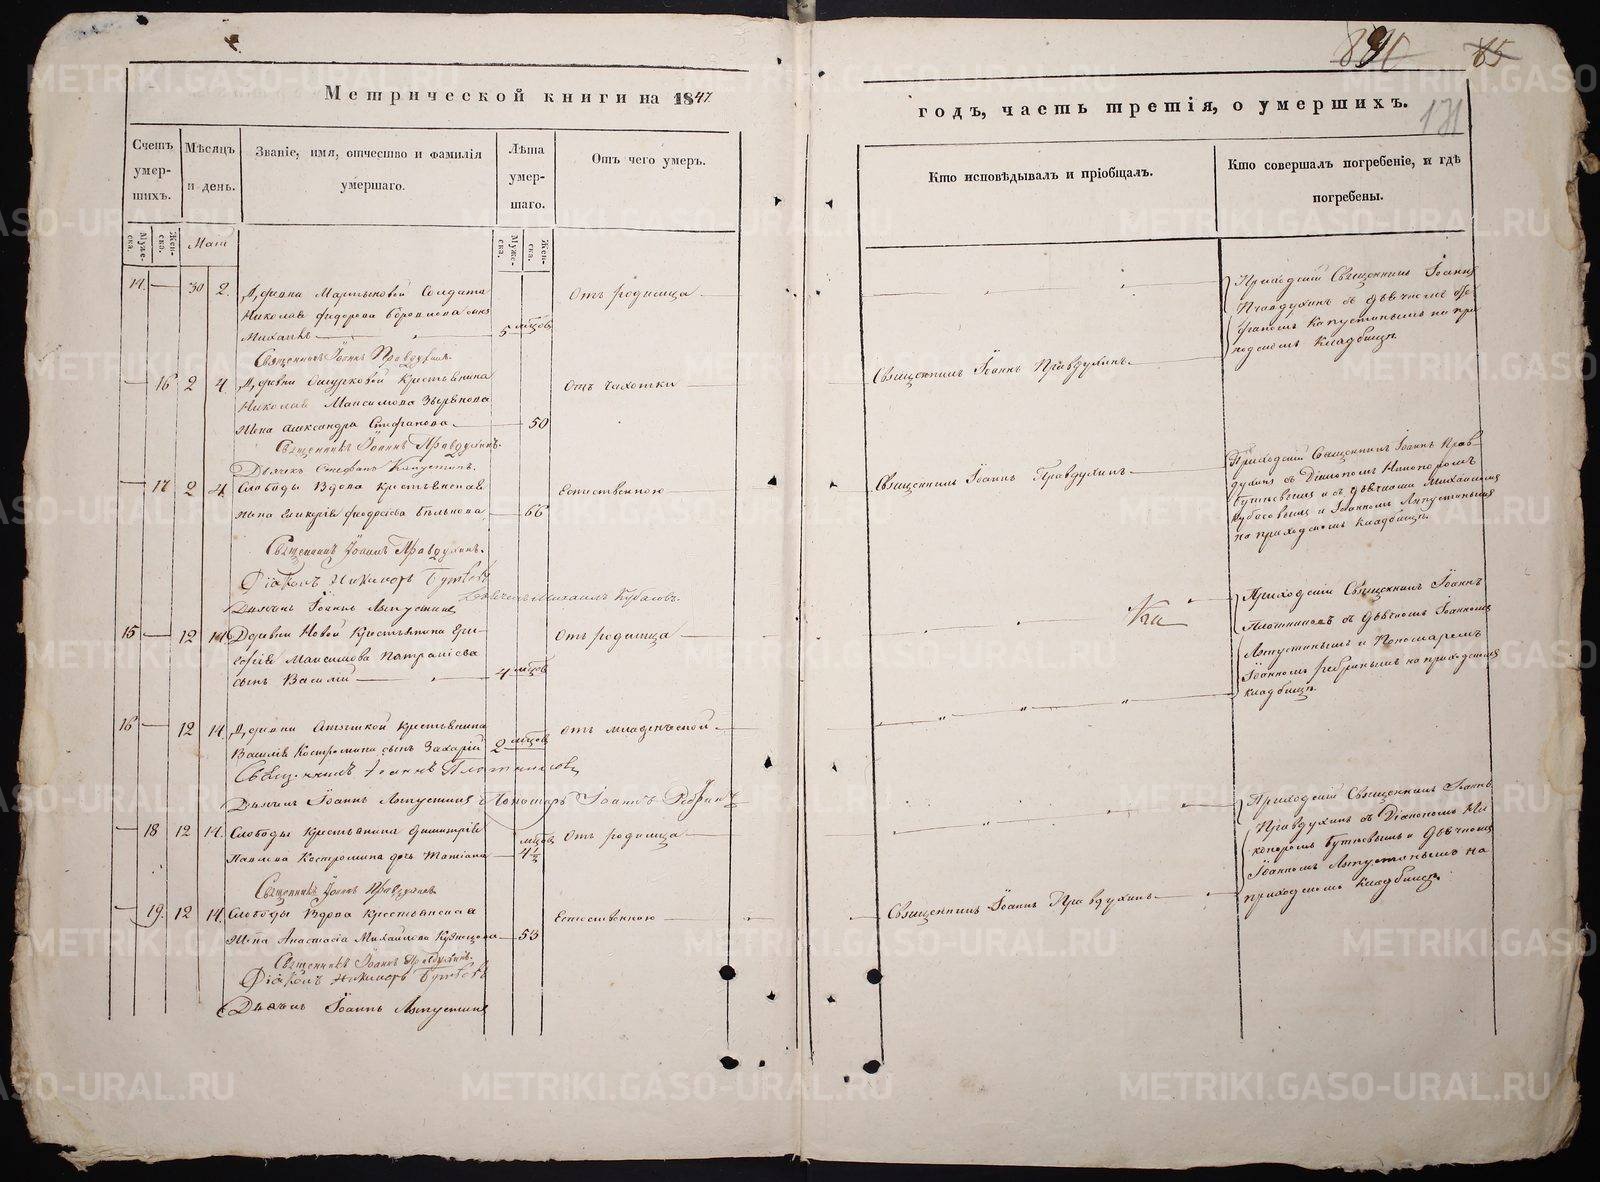 Метрической книги на 1847
годъ, часть третія, о умершихъ.
85
131
Счетъ умер-шихъ.
Мѣсяцъ и день.
Званіе, имя, отчество и фамилія умершаго.
Лѣта умер-шаго.
Отъ чего умеръ.
Кто исповѣдывалъ и пріобщалъ.
Кто совершалъ погребеніе, и гдѣ погребены.
Муже-ска.
Жен-ска.
Маія
Муже-ска.
Жен-ска.
30 2.
Деревни Мартыновой Солдата
Николая Федорова сынъ
Михаилъ
5 мцовъ
Отъ родимца
Приходскій Священникъ Іоаннъ
Правдухинъ съ дьячкомъ Сте-
фаномъ Капустинымъ на при-
ходскомъ кладбищѣ.
Священникъ Іоаннъ Правдухинъ.
16 2 4.
Деревни Ошурковой Крестьянина
Николая Максимова Зырянова
жена Александра Стефанова
50
Отъ чахотки
Священникъ Іоаннъ Правдухинъ
Священникъ Іоаннъ Правдухинъ.
Дьячекъ Стефанъ Капустинъ.
17 2 4.
Слободы Вдова крестьянская
жена Гликерія Феодосіева Бѣлькова
66
Естественною
Священникъ Іоаннъ Правдухинъ
Приходскій Священникъ Іоаннъ Прав-
духинъ съ Діакономъ Никоноромъ
Бутковымъ и съ дьячками Михаиломъ
Кубасовымъ и Іоанномъ Ляпустинымъ
на приходскомъ кладбищѣ.
Священникъ Іоаннъ Правдухинъ.
Діаконъ Никаноръ Бутковъ
Дьячекъ Михаилъ Кубасовъ.
Дьячекъ Іоаннъ Ляпустинъ
15 12 14
Деревни Новой Крестьянина
Максимова
сынъ Василій
4 мцовъ
Отъ родимца
Приходскій Священникъ Іоаннъ
Плотниковъ съ дьячкомъ Іоанномъ
Ляпустинымъ и Пономаремъ
Іоанномъ Ребринымъ на приходскомъ
кладбищѣ.
16 12 14.
Деревни Крестьянина
Василія Костромина сынъ Захарій
2 мцовъ
Отъ младенческой
Дьячекъ Іоаннъ Ляпустинъ Пономарь Іоаннъ Ребринъ
18 12 14.
Слободы Крестьянина Димитрія
Павлова Костромина дочь Татіана
мцовъ 4½
Отъ родимца
Приходскій Священникъ Іоаннъ
Правдухинъ съ Діакономъ Ни-
коноромъ Бутковымъ и дьячкомъ
Іоанномъ Ляпустинымъ на
приходскомъ кладбищѣ.
Священникъ Іоаннъ Правдухинъ
19. 12 14.
Слободы Вдова Крестьянская
жена Анастасія Михайлова Кузнецова
53
Естественною
Священникъ Іоаннъ Правдухинъ
Священникъ Іоаннъ Правдухинъ.
Діаконъ Никаноръ Бутковъ
Дьячекъ Іоаннъ Ляпустинъ
METRIKI.GASO-URAL.RU